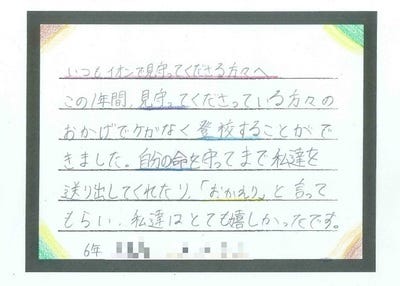 いつもイオンで見守ってくださる方々へ
この1年間、見守ってくださっている方々の
おかげでケガなく登校することがで
きました。自分の命を守ってまで私達を
送り出してくれたり、「おかえり」と言って
もらい、私達はとても嬉しかったです。
6年